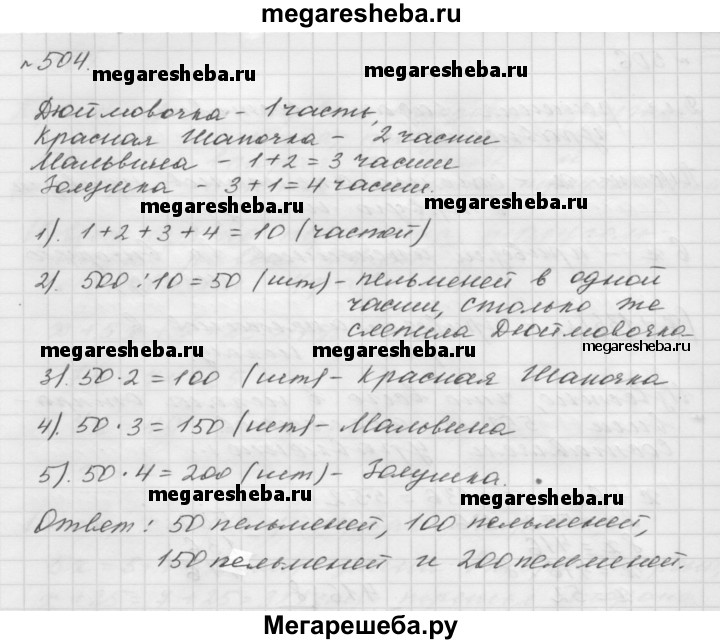 megaresheba.ru
№504.
megaresheba.ru megaresheba.ru
Дюймовочка - 1 часть,
Красная Шапочка - 2 части
Мальвина - 1+2=3 части
Золушка - 3+1=4 части.
megaresheba.ru megaresheba.ru
1). 1+2+3+4=10 (частей)
2). 500:10=50 (шт)- пельменей в одной
части, столько же
слепила Дюймовочка
megaresheba.ru megaresheba.ru megaresheba.ru
3). 50·2=100 (шт)- Красная Шапочка
4). 50·3=150 (шт)- Мальвина
5). 50·4=200 (шт)- Золушка.
megaresheba.ru megaresheba.ru
Ответ: 50 пельменей, 100 пельменей,
150 пельменей и 200 пельменей.
Мегарешеба.ру